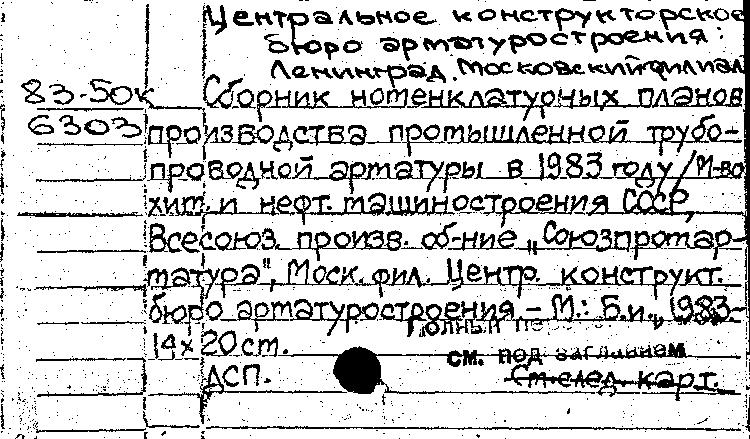 Центральное конструкторское
бюро арматуростроения:
Ленинград. Московский филиал
83-50к Сборник номенклатурных планов
6303 производства промышленной трубо-
проводной арматуры в 1983 году / М-во
хит. и нефт. машиностроения СССР,
Всесоюз. произв. об-ние „Союзпромар-
матура", Моск. фил. Центр. конструкт.
бюро арматуростроения. - М.: Б.и., 1983-
Полный
14х20 ст. см. под заглавием
ДСП. См. след. карт.